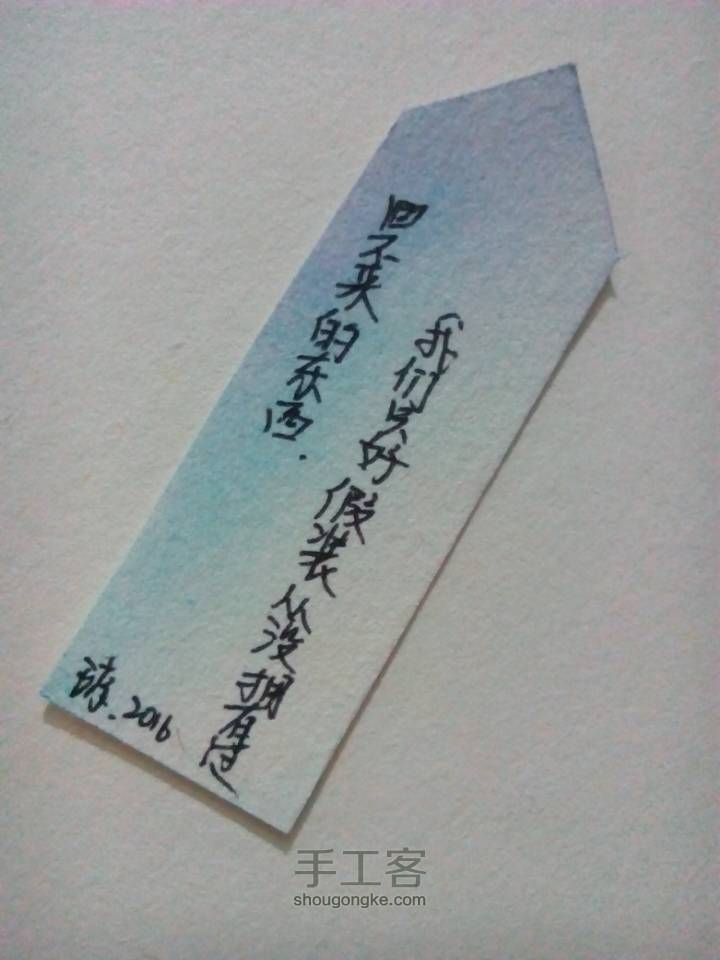 回不来的东西.
我们只好假装从没拥有过
琼.2016
手工客
shougongke.com